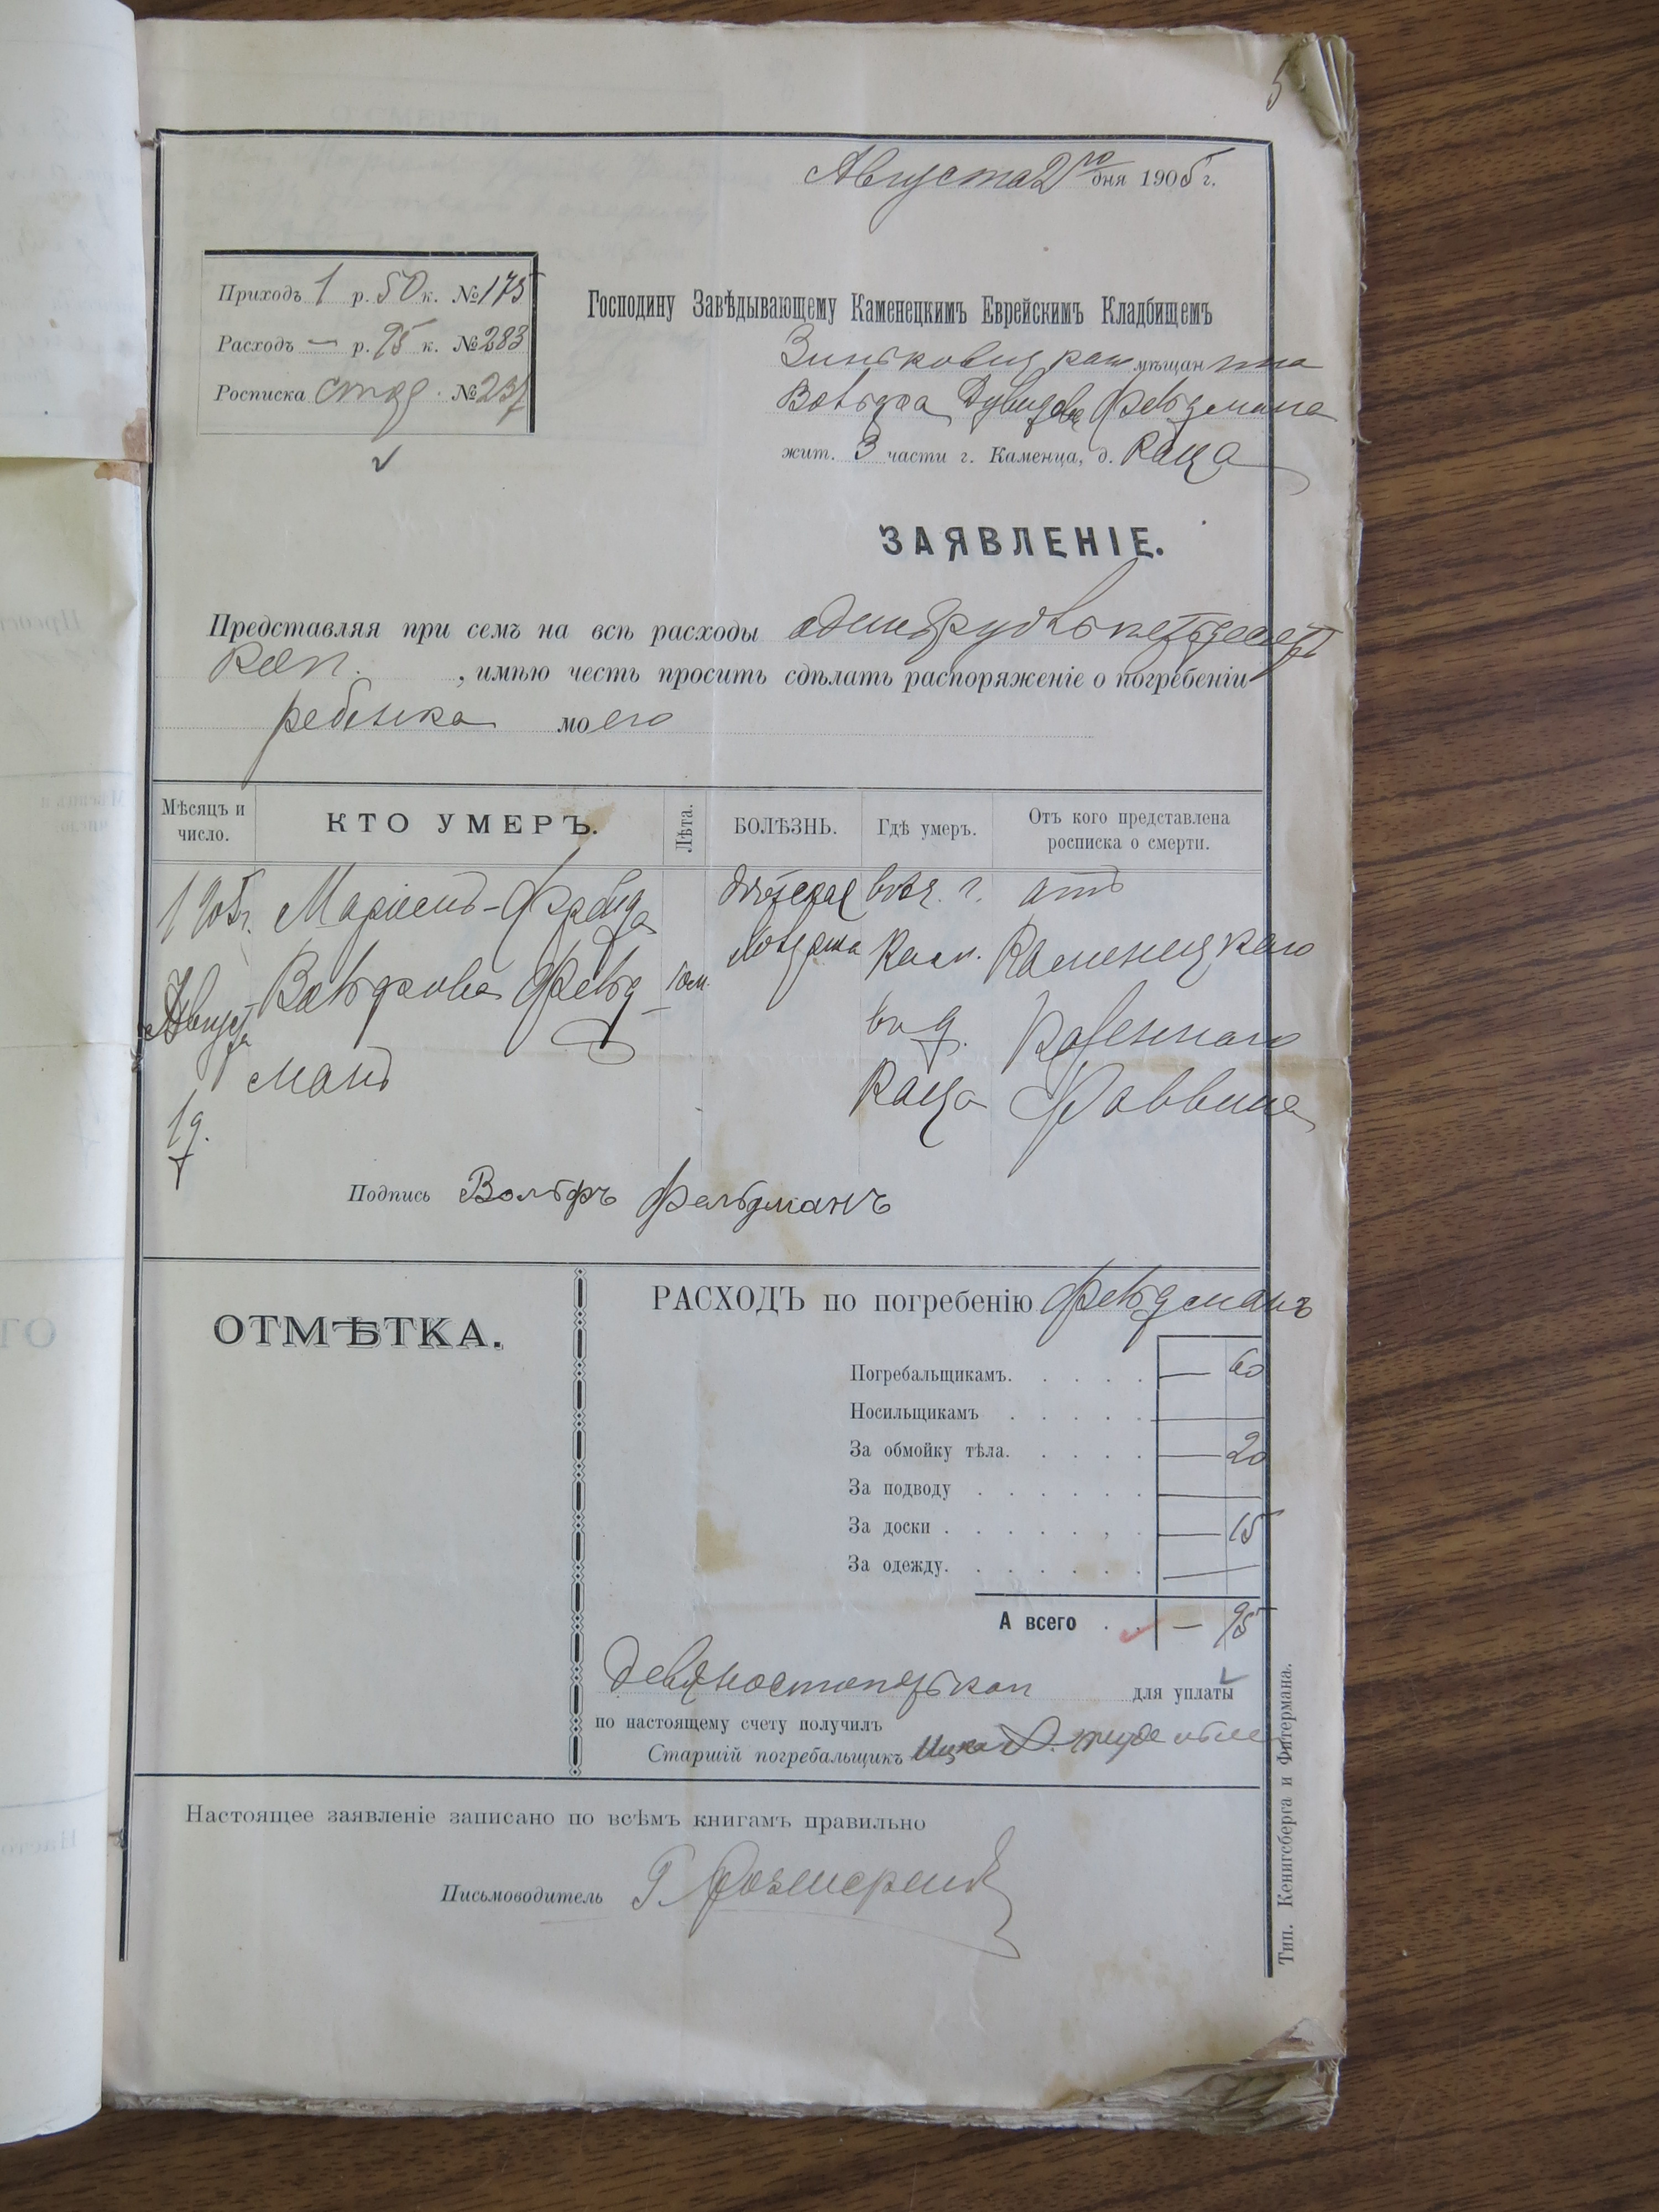 5
Августа 2го дня 1905 г.
Приходъ 1 р. 50 к. № 175
Расходъ — р. 95 к. № 283
Росписка № 237
Господину Завѣдывающему Каменецкимъ Еврейскимъ Кладбищемъ
мѣщанина
Вольфа Дувидова Фельдмана
жит. 3 части г. Каменца, д. Каца
ЗАЯВЛЕНІЕ.
Представляя при семъ на всѣ расходы одинъ рубль пятьдесятъ
коп. , имѣю честь просить сдѣлать распоряженіе о погребеніи
ребенка моего
Мѣсяцъ и число.
КТО УМЕРЪ.
Лѣта.
БОЛѢЗНЬ.
Гдѣ умеръ.
Отъ кого представлена росписка о смерти.
1905 г. Фрейда дѣтская въ г. отъ
Вольфова Фельд- 10 м. Кам. Каменецкаго
Августа въ д. Казеннаго
манъ Каца Раввина
1 д.
Подпись Вольфъ Фельдманъ
ОТМѢТКА.
РАСХОДЪ по погребенію Фельдманъ
Погребальщикамъ. — 60
Носильщикамъ —
За обмойку тѣла. — 20
За подводу —
За доски — 15
За одежду. —
А всего — 95
девяносто пять коп для уплаты
по настоящему счету получилъ
Старшій погребальщикъ Ицко
Настоящее заявленіе записано по всѣмъ книгамъ правильно
Письмоводитель Г.
Тип. Кенигсберга и Фитермана.